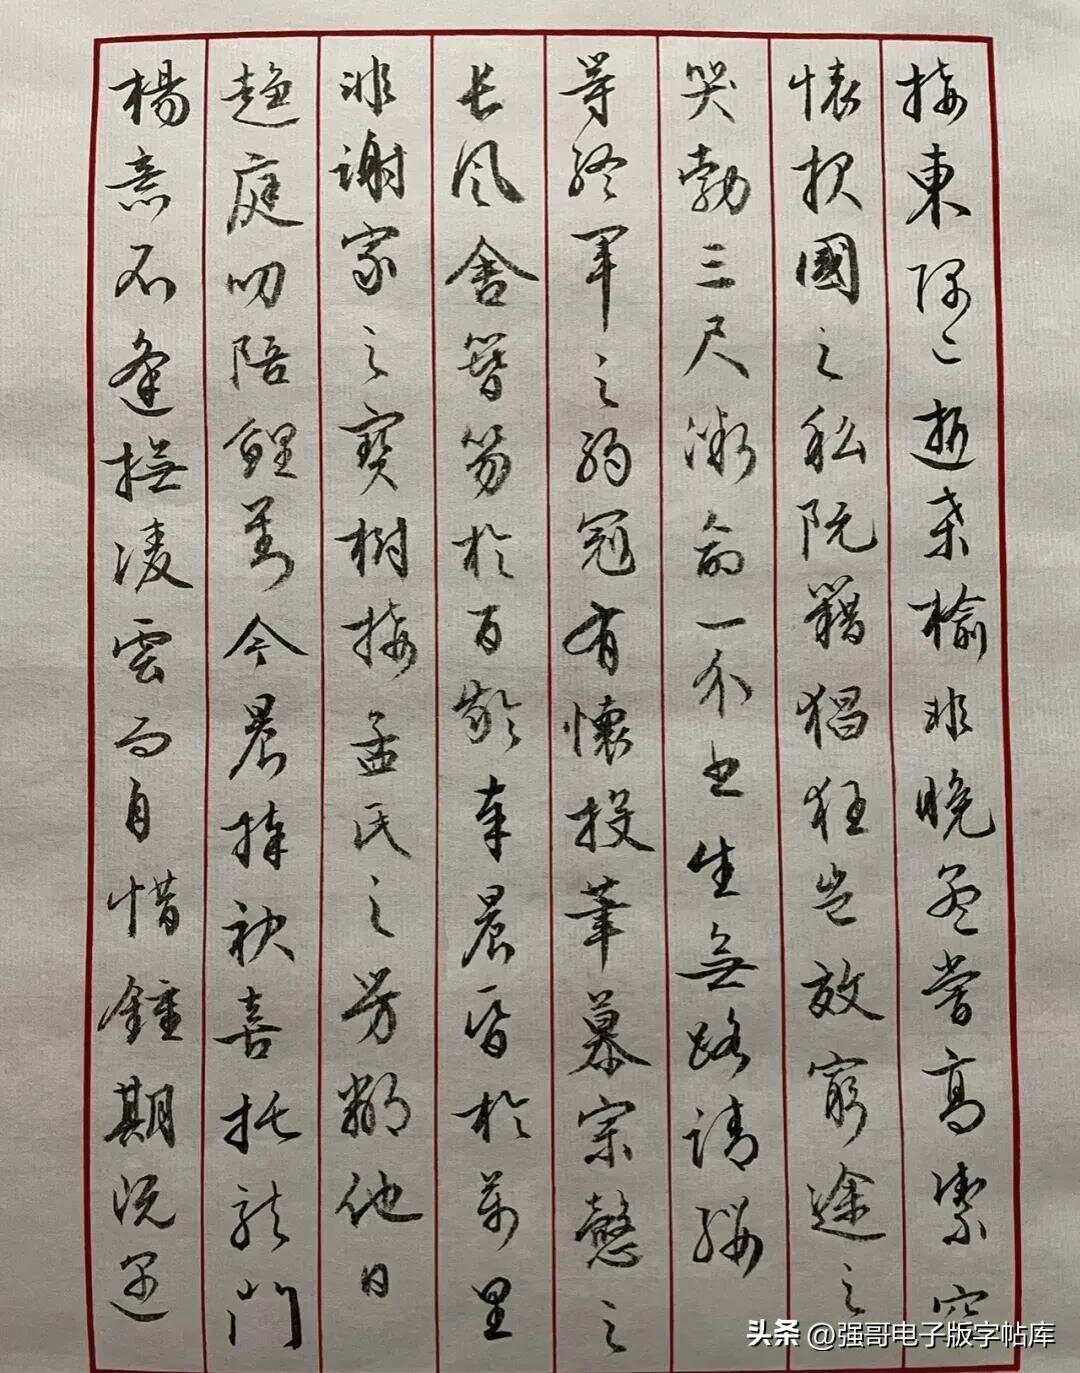 接東隅已逝桑榆非晚孟嘗高潔空
懷报國之私阮籍猖狂豈效窮途之
哭勃三尺微命一介書生無路請纓
等終軍之弱冠有懷投筆慕宗愨之
长风舍簪笏於百齡奉晨昏於萬里
非谢家之寶樹接孟氏之芳鄰他日
趋庭叨陪鲤對今晨捧袂喜托龍門
楊意不逢撫凌雲而自惜鍾期既遇
头条 @强哥电子版字帖库